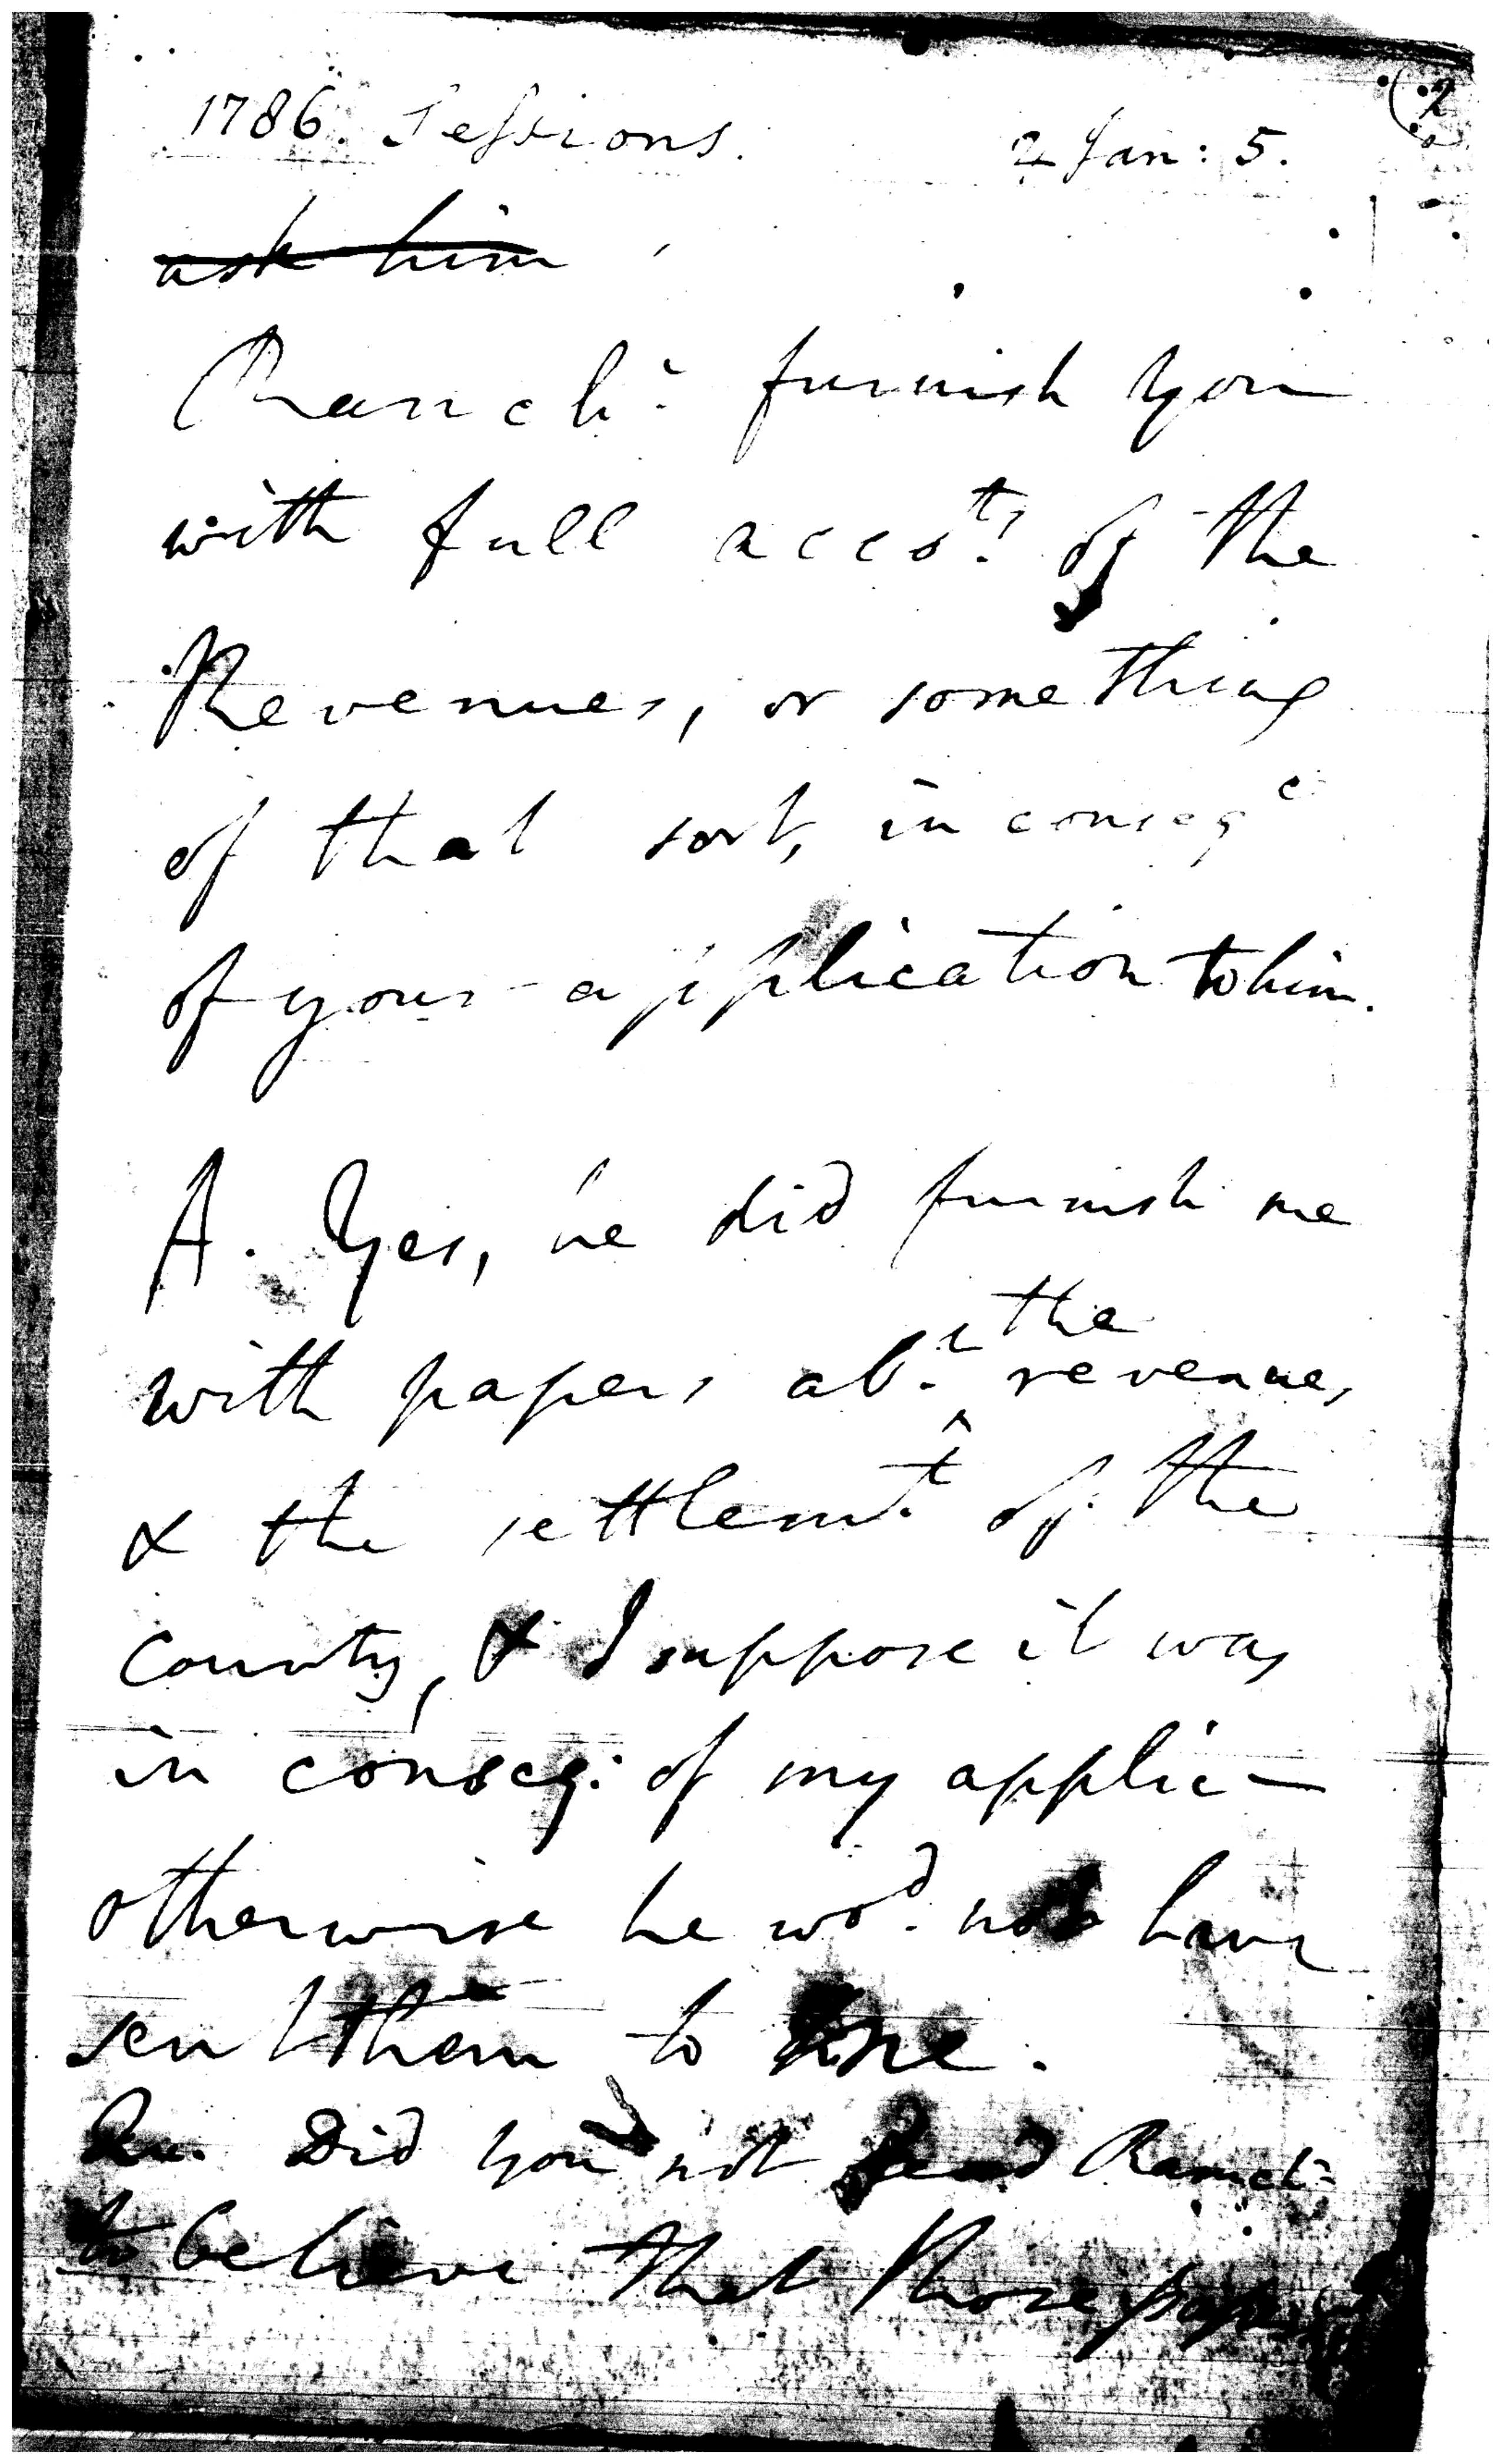 (2
1786. Sessions. 2 Jan: 5.
ask him
Ramch: furnish you
with full acco.ts of the
Revenues, or something
of that sort, in conseq.e
of your application to him.
A. Yes, he did furnish me
with papers ab.t the revenues
& the settlem.t of the
County, & I suppose it was
in conseq: of my applic—
otherwise he wo.d not have
sent them to me.
Qu. Did you not lead Ramch:
to believe that those papers